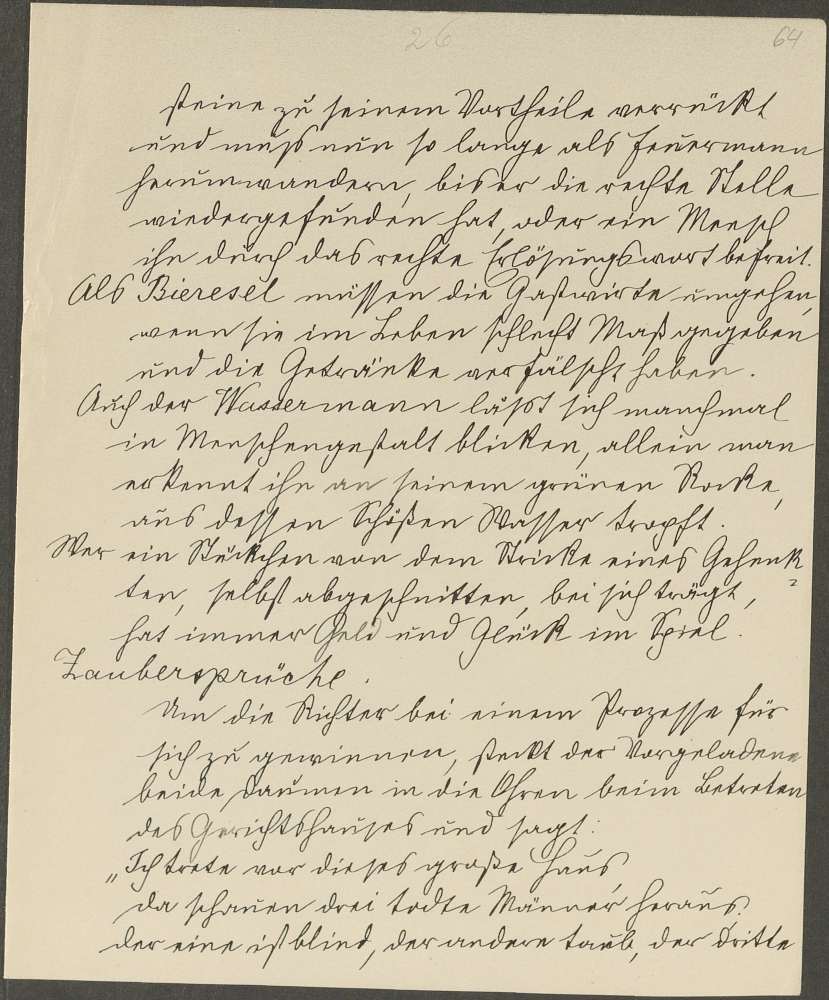 26 64
steine zu seinem Vortheile verrückt
und muß nun so lange als Feuermann
herumwandern, bis er die rechte Stelle
wiedergefunden hat, oder ein Mensch
ihn durch das rechte Erlösungswort befreit.
Als Bieresel müssen die Gastwirte umgehen,
wenn sie im Leben schlecht Maß gegeben
und die Getränke verfälscht haben.
Auch der Wassermann läßt sich manchmal
in Menschengestalt blicken, allein man
erkennt ihn an seinem grünen Rocke,
aus dessen Schößen Wasser tropft.
Wer ein Stückchen von dem Stricke eines Gehenk=
ten, selbst abgeschnitten, bei sich trägt,
hat immer Geld und Glück im Spiel.
Zaubersprüche.
Um die Richter bei einem Prozesse für
sich zu gewinnen, steckt der Vorgeladene
beide Daumen in die Ohren beim Betreten
des Gerichtshauses und sagt:
„Ich trete vor dieses große Haus,
da schauen drei todte Männer heraus,
der eine ist blind, der andere taub, der dritte